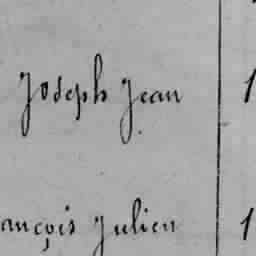 Joseph Jean 1
ançois Julien 1